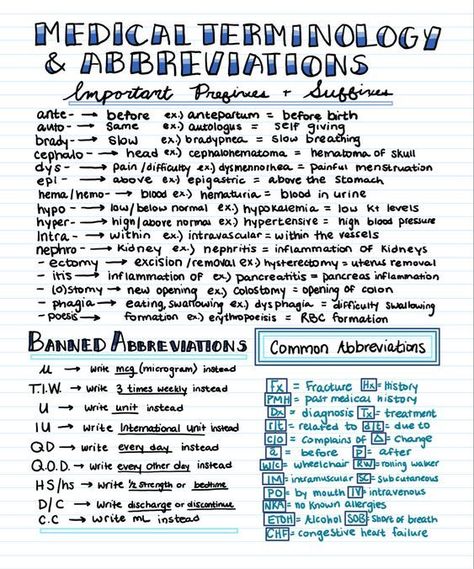 MEDICAL TERMINOLOGY
& ABBREVIATIONS
Important Prefixes + Suffixes
ante- → before ex.) antepartum = before birth
auto- → same ex.) autologus = self giving
brady- → slow ex.) bradypnea = slow breathing
cephalo- → head ex.) cephalohematoma = hematoma of skull
dys- → pain/difficulty ex.) dysmennorhea = painful menstruation
epi- → above ex.) epigastric = above the stomach
hema/hemo- → blood ex.) hematuria = blood in urine
hypo- → low/below normal ex.) hypokalemia = low K+ levels
hyper- → high/above normal ex.) hypertensive = high blood pressure
Intra- → within ex.) intravascular = within the vessels
nephro- → kidney ex.) nephritis = inflammation of kidneys
-ectomy → excision/removal ex.) hysterectomy = uterus removal
-itis → inflammation of ex.) pancreatitis = pancreas inflammation
-(o)stomy → new opening ex.) colostomy = opening of colon
-phagia → eating, swallowing ex.) dysphagia = difficulty swallowing
-poesis → formation ex.) erythropoesis = RBC formation
BANNED ABBREVIATIONS
u → write mcg (microgram) instead
T.I.W. → write 3 times weekly instead
U → write unit instead
IU → write International unit instead
QD → write every day instead
Q.O.D. → write every other day instead
HS/hs → write ½ strength or bedtime
D/C → write discharge or discontinue
C.C → write mL instead
Common Abbreviations
Fx = Fracture Hx = History
PMH = past medical history
Dx = diagnosis Tx = treatment
r/t = related to d/t = due to
c/o = complains of Δ = change
a = before p = after
W/c = wheelchair RW = rolling walker
IM = intramuscular SC = subcutaneous
PO = by mouth IV = intravenous
NKA = no known allergies
ETOH = Alcohol SOB = Short of breath
CHF = congestive heart failure